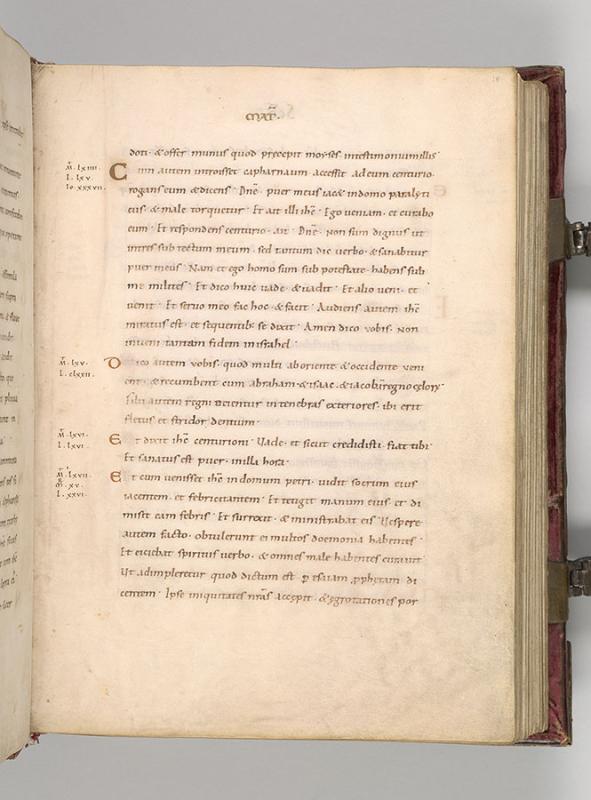 MAT̄.
doti · & offer munus quod precepit moyses intestimoniumillis
M̄. lxiiii.
L. lxv.
Io. xxxvii.
Cum autem introisset capharnaum accessit adeum centurio ·
rogans eum & dicens · Dn̄e · puer meus iac& indomo paralyti
cus · & male torquetur · Et ait illi ih̄s · Ego veniam · et curabo
eum · Et respondens centurio · ait · Dn̄e · Non sum dignus ut
intres sub tectum meum · sed tantum dic verbo · & sanabitur
puer meus · Nam et ego homo sum sub potestate · habens sub
me milites · Et dico huic uade · & uadit · Et alio veni · et
venit · Et seruo meo fac hoc · & facit · Audiens autem ih̄s
miratus est · et sequentib; se dixit · Amen dico vobis · Non
inveni tantam fidem inisrahel ·
M̄. lxv.
L. clxxii.
Dico autem vobis · quod multi aboriente & occidente veni
ent · & recumbent cum abraham · & isaac · & iacob inregno cęlorum
filii autem regni eicientur intenebras exteriores · ibi erit
fletus et stridor dentium ·
M̄. lxvi.
L. lxvi.
Et dixit ih̄s centurioni · Uade · et sicut credidisti · fiat tibi ·
Et sanatus est puer · inilla hora ·
M̄. lxvii.
M̄. xv.
L. xxvi.
Et cum venisset ih̄s in domum petri · vidit socrum eius
iacentem · et febricitantem · Et tetigit manum eius · et di
misit eam febris · Et surrexit · & ministrabat eis · Vespere
autem facto · obtulerunt ei multos doemonia habentes ·
Et eiciebat spiritus verbo · & omnes male habentes curauit ·
Ut adimpleretur quod dictum est · p isaiam pphetam di
centem · Ipse iniquitates nr̄as accępit · & ęgrotationes por